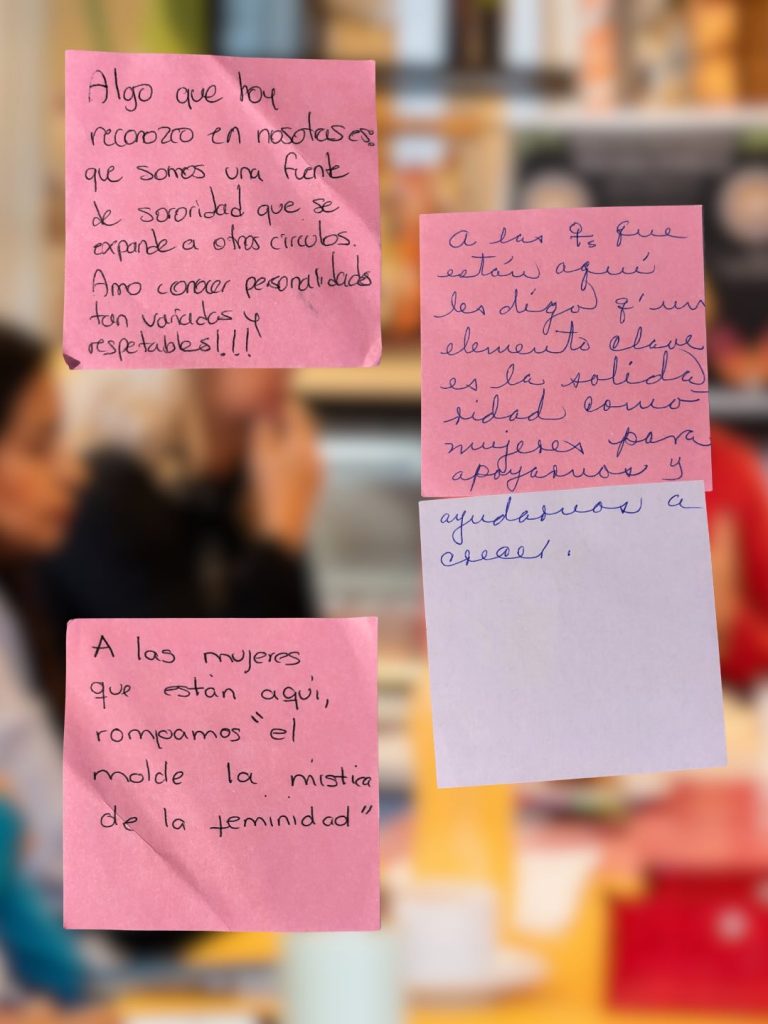 Algo que hoy
reconozco en nosotras es:
que somos una fuente
de sororidad que se
expande a otros circulos.
Amo conocer personalidades
tan variadas y
respetables!!!
A las qs que
están aquí
les digo q' un
elemento clave
es la solida
ridad como
mujeres para
apoyarnos y
ayudarnos a
crecer.
A las mujeres
que están aquí,
rompamos "el
molde la mistica
de la feminidad"